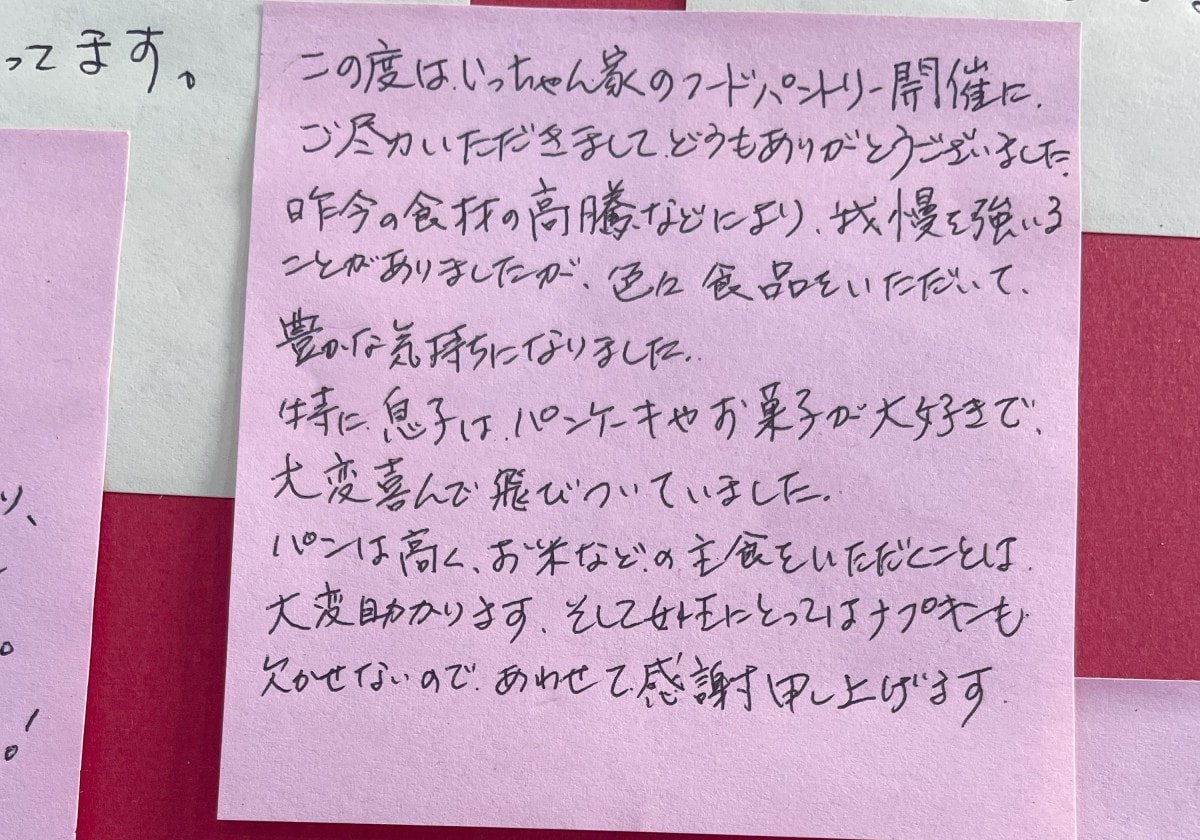 ってます。
この度は、いっちゃん家のフードパントリー開催に、
ご尽力いただきまして、どうもありがとうございました。
昨今の食材の高騰などにより、我慢を強いる
ことがありましたが、色々食品をいただいて、
豊かな気持ちになりました。
特に、息子は、パンケーキやお菓子が大好きで、
大変喜んで飛びついていました。
パンは高く、お米などの主食をいただくことは、
大変助かります。そして女性にとってはナプキンも
欠かせないので、あわせて感謝申し上げます。
り、
!